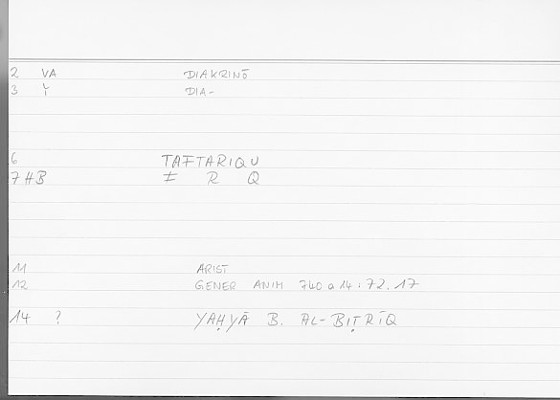 2 VA DIAKRINŌ
3 Y DIA-
6 TAFTARIQU
7 HB I R Q
11 ARIST
12 GENER ANIM 740 a 14 : 72.17
14 ? YAḤYĀ B. AL-BIṬRĪQ